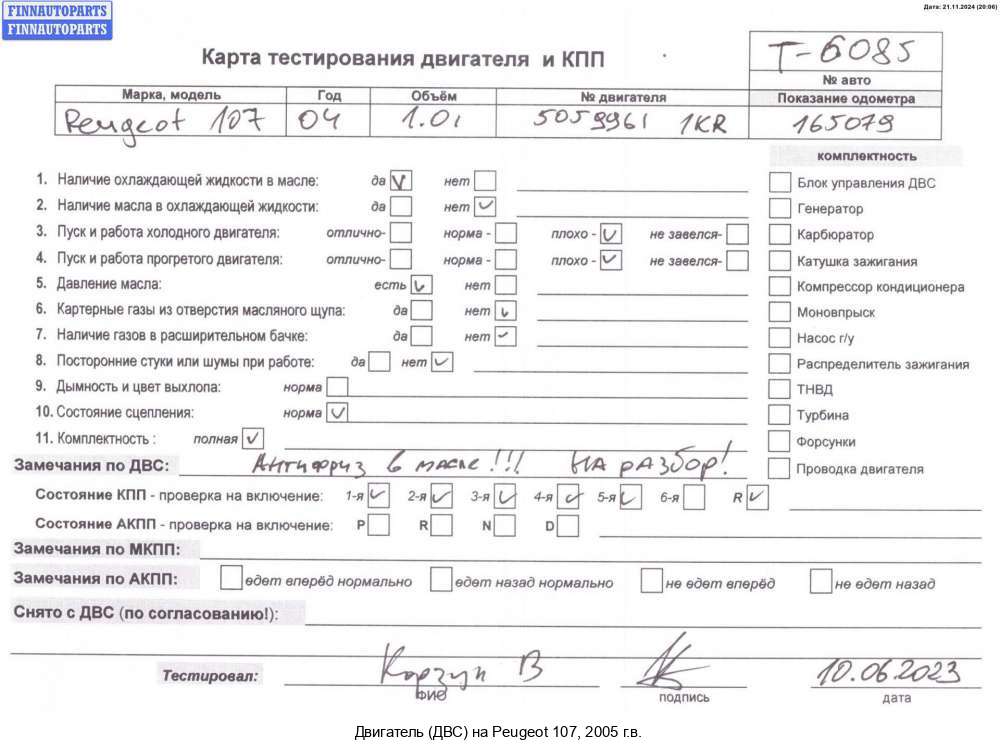 FINNAUTOPARTS
FINNAUTOPARTS
Дата: 21.11.2024 (20:06)
Карта тестирования двигателя и КПП
T-6085
№ авто
Марка, модель Год Объём № двигателя Показание одометра
Peugeot 107 04 1.0i 5059961 1KR 165079
комплектность
1. Наличие охлаждающей жидкости в масле: да нет
Блок управления ДВС
2. Наличие масла в охлаждающей жидкости: да нет
Генератор
3. Пуск и работа холодного двигателя: отлично- норма - плохо - не завелся-
Карбюратор
4. Пуск и работа прогретого двигателя: отлично- норма - плохо - не завелся-
Катушка зажигания
5. Давление масла: есть нет
Компрессор кондиционера
6. Картерные газы из отверстия масляного щупа: да нет
Моновпрыск
7. Наличие газов в расширительном бачке: да нет
Насос г/у
8. Посторонние стуки или шумы при работе: да нет
Распределитель зажигания
9. Дымность и цвет выхлопа: норма
ТНВД
10. Состояние сцепления: норма
Турбина
11. Комплектность : полная
Форсунки
Замечания по ДВС: Антифриз в масле!!! НА разбор!
Проводка двигателя
Состояние КПП - проверка на включение: 1-я 2-я 3-я 4-я 5-я 6-я R
Состояние АКПП - проверка на включение: P R N D
Замечания по МКПП:
Замечания по АКПП: едет вперёд нормально едет назад нормально не едет вперёд не едет назад
Снято с ДВС (по согласованию!):
Тестировал: Корзун В 10.06.2023
ФИО подпись дата
Двигатель (ДВС) на Peugeot 107, 2005 г.в.